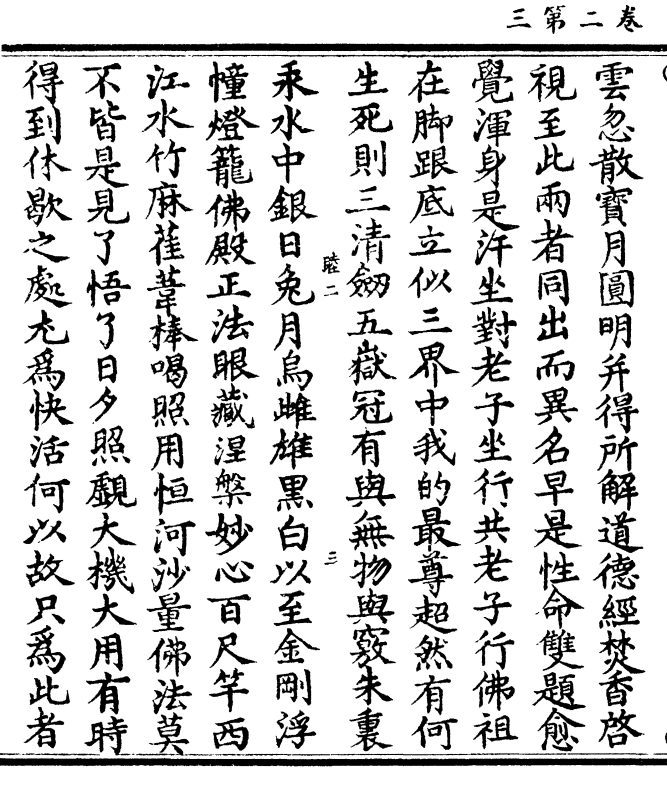 卷二第三
雲忽散寶月圓明并得所解道德經焚香啓
視至此兩者同出而異名早是性命雙題愈
覺渾身是汗坐對老子坐行共老子行佛祖
在脚跟底立似三界中我的最尊超然有何
生死則三清劒五嶽冠有與無物與竅朱裏
睦二
三
汞水中銀日兔月烏雌雄黑白以至金剛浮
幢燈籠佛殿正法眼藏涅槃妙心百尺竿西
江水竹麻萑葦棒喝照用恒河沙量佛法莫
不皆是見了悟了日夕照覷大機大用有時
得到休歇之處尤爲快活何以故只爲此者